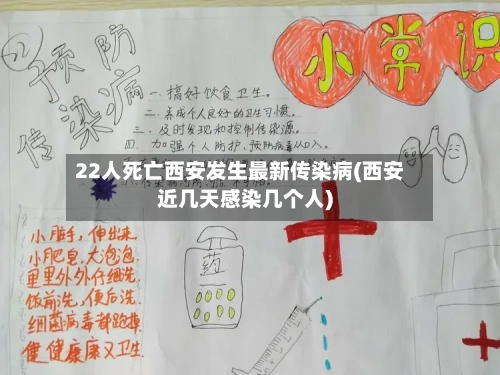 预防
传染病
小常识
一、搞好饮食卫生。
二、养成个人良好的卫生习惯。
三、及时发现和控制传染源。
四、加强个人防护，预防病毒从口入。
22人死亡西安发生最新传染病(西安
近几天感染几个人)
小脏手，伸出来，
小肥皂，大泡泡，
里里外外仔细洗，
饭前洗，便后洗，
细菌病毒都跑掉
健健康康又卫生.
药